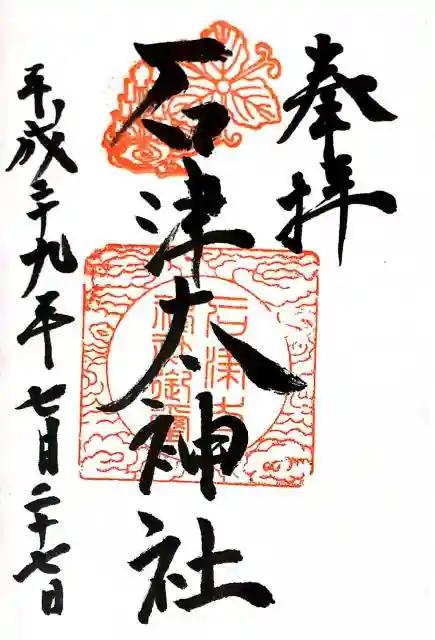 奉拝
石津太神社
平成二十九年七月二十七日
石津太
神社御璽